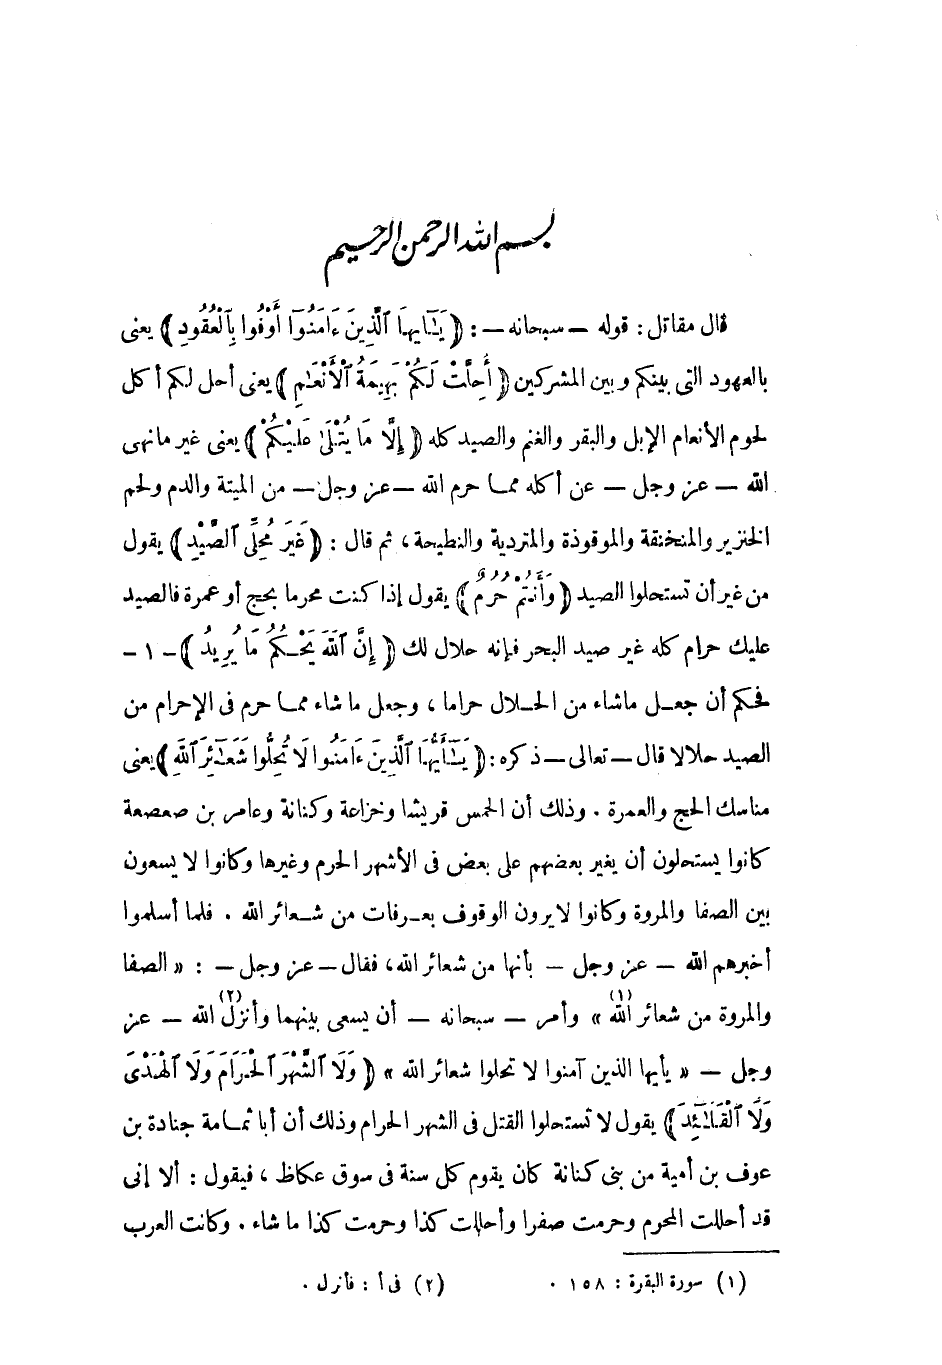 بسم الله الرحمن الرحيم
قال مقاتل: قوله — سبحانه —: ﴿يَـٰٓأَيُّهَا ٱلَّذِينَ ءَامَنُوٓا۟ أَوْفُوا۟ بِٱلْعُقُودِ﴾ يعنى
بالعهود التى بينكم وبين المشركين ﴿أُحِلَّتْ لَكُمْ بَهِيمَةُ ٱلْأَنْعَـٰمِ﴾ يعنى أحل لكم أكل
لحوم الأنعام الإبل والبقر والغنم والصيد كله ﴿إِلَّا مَا يُتْلَىٰ عَلَيْكُمْ﴾ يعنى غير مانهى
الله — عز وجل — عن أكله مما حرم الله — عز وجل — من الميتة والدم ولحم
الخنزير والمنخنقة والموقوذة والمتردية والنطيحة، ثم قال: ﴿غَيْرَ مُحِلِّى ٱلصَّيْدِ﴾ يقول
من غير أن تستحلوا الصيد ﴿وَأَنتُمْ حُرُمٌ﴾ يقول إذا كنت محرما بحج أو عمرة فالصيد
عليك حرام كله غير صيد البحر فإنه حلال لك ﴿إِنَّ ٱللَّهَ يَحْكُمُ مَا يُرِيدُ﴾ - ١ -
فحكم أن جعل ماشاء من الحلال حراما، وجعل ما شاء مما حرم فى الإحرام من
الصيد حلالا قال — تعالى — ذكره: ﴿يَـٰٓأَيُّهَا ٱلَّذِينَ ءَامَنُوا لَا تُحِلُّوا شَعَـٰٓئِرَ ٱللَّهِ﴾ يعنى
مناسك الحج والعمرة. وذلك أن الحمس قريشا وخزاعة وكنانة وعامر بن صعصعة
كانوا يستحلون أن يغير بعضهم على بعض فى الأشهر الحرم وغيرها وكانوا لا يسعون
بين الصفا والمروة وكانوا لا يرون الوقوف بعرفات من شعائر الله. فلما أسلموا
أخبرهم الله — عز وجل — بأنها من شعائر الله، فقال — عز وجل —: « الصفا
والمروة من شعائر الله (١) » وأمر — سبحانه — أن يسعى بينهما وأنزل (٢) الله — عز
وجل — « يأيها الذين آمنوا لا تحلوا شعائر الله » ﴿وَلَا ٱلشَّهْرَ ٱلْحَرَامَ وَلَا ٱلْهَدْىَ
وَلَا ٱلْقَلَـٰٓئِدَ﴾ يقول لا تستحلوا القتل فى الشهر الحرام وذلك أن أبا ثمامة جنادة بن
عوف بن أمية من بنى كنانة كان يقوم كل سنة فى سوق عكاظ، فيقول: ألا إنى
قد أحللت المحرم وحرمت صفرا وأحللت كذا وحرمت كذا ما شاء. وكانت العرب
(١) سورة البقرة: ١٥٨. (٢) فى أ: فأنزل.